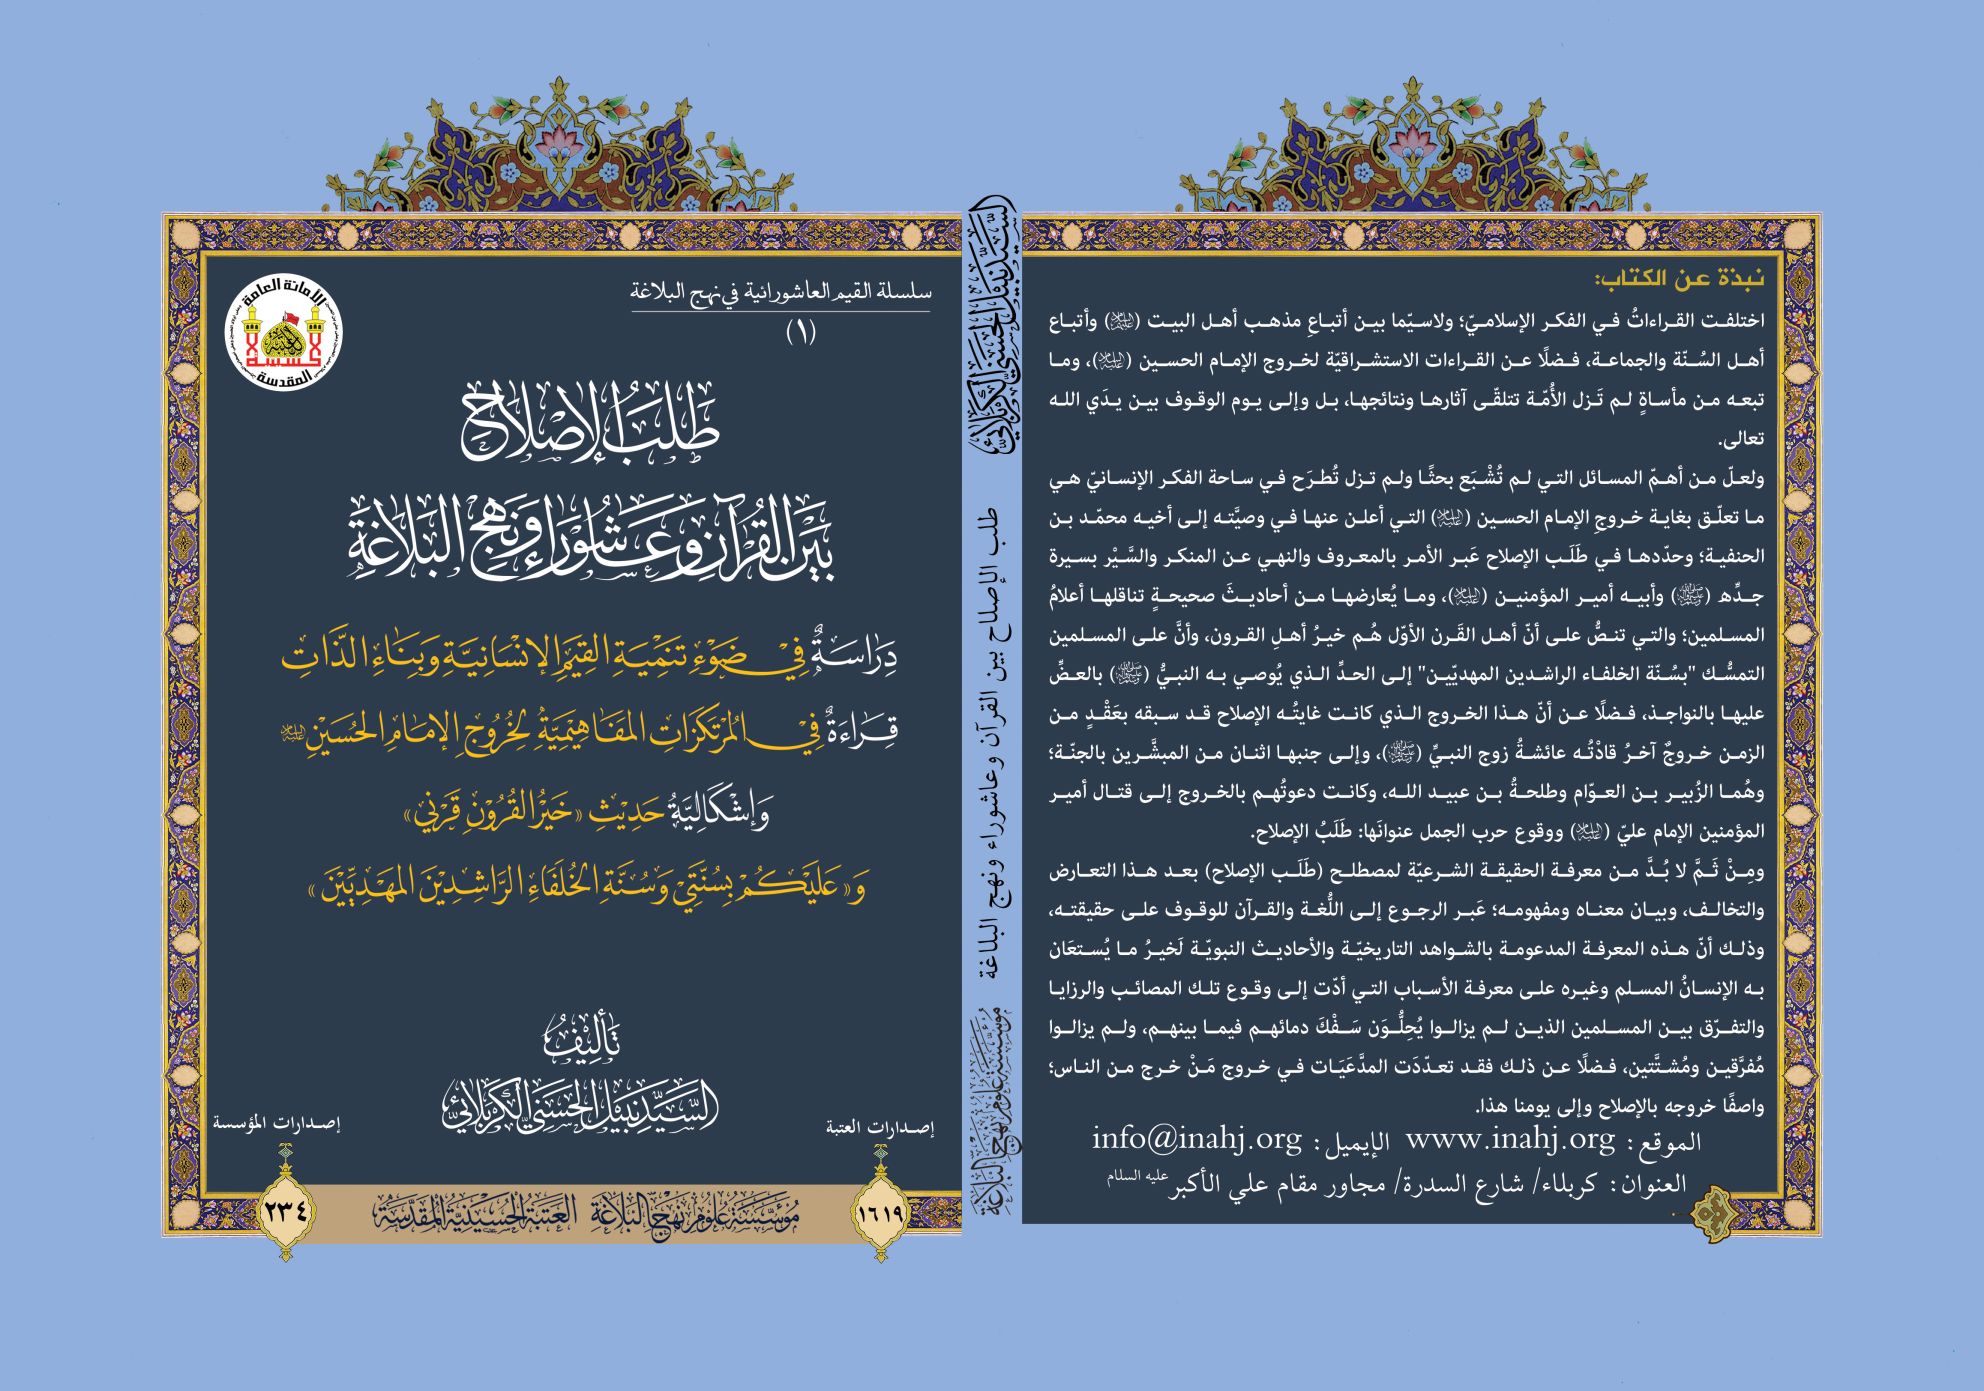 سلسلة القيم العاشورائية في نهج البلاغة
(١)
الأمانة العامة
للعتبة
الحسينية
المقدسة
طَلَبُ الإِصْلَاحِ
بَيْنَ القُرْآنِ وَعَاشُورَاءَ وَنَهْجِ البَلَاغَةِ
دِرَاسَةٌ فِي ضَوْءِ تَنْمِيَةِ القِيَمِ الإِنْسَانِيَّةِ وَبِنَاءِ الذَّاتِ
قِرَاءَةٌ فِي المُرْتَكَزَاتِ المَفَاهِيْمِيَّةِ لِخُرُوجِ الإِمَامِ الحُسَيْنِ عليه السلام
وَإِشْكَالِيَّةُ حَدِيْثِ «خَيْرُ القُرُوْنِ قَرْنِي»
وَ«عَلَيْكُمْ بِسُنَّتِي وَسُنَّةِ الخُلَفَاءِ الرَّاشِدِيْنَ المَهْدِيِّيْنَ»
تَأْلِيْفُ
السَّيِّد نَبِيل الحَسَنِي الكَرْبَلَائِي
إصدارات العتبة
١٦١٩
إصدارات المؤسسة
٢٣٤
مُؤَسَّسَةُ عُلُومِ نَهْجِ البَلَاغَةِ العَتَبَةُ الحُسَيْنِيَّةُ المُقَدَّسَةُ
السَّيِّد نَبِيل الحَسَنِي الكَرْبَلَائِي
طلب الإصلاح بين القرآن وعاشوراء ونهج البلاغة
مؤسسة علوم نهج البلاغة
نبذة عن الكتاب:
اختلفت القراءاتُ في الفكر الإسلاميّ؛ ولاسيّما بين أتباعِ مذهب أهل البيت (عليهم السلام) وأتباع
أهل السُنّة والجماعة، فضلًا عن القراءات الاستشراقيّة لخروج الإمام الحسين (عليه السلام)، وما
تبعه من مأساةٍ لم تَزل الأُمّة تتلقّى آثارها ونتائجها، بل وإلى يوم الوقوف بين يدَي الله
تعالى.
ولعلّ من أهمّ المسائل التي لم تُشْبَع بحثًا ولم تزل تُطرَح في ساحة الفكر الإنسانيّ هي
ما تعلّق بغاية خروجِ الإمام الحسين (عليه السلام) التي أعلن عنها في وصيَّته إلى أخيه محمّد بن
الحنفية؛ وحدّدها في طَلَب الإصلاح عَبر الأمر بالمعروف والنهي عن المنكر والسَّيْر بسيرة
جدِّه (صلى الله عليه وآله) وأبيه أمير المؤمنين (عليه السلام)، وما يُعارضها من أحاديثَ صحيحةٍ تناقلها أعلامُ
المسلمين؛ والتي تنصُّ على أنّ أهل القَرن الأوّل هُم خيرُ أهلِ القرون، وأنَّ على المسلمين
التمسُّك "بسُنّة الخلفاء الراشدين المهديّين" إلى الحدِّ الذي يُوصي به النبيُّ (صلى الله عليه وآله) بالعضِّ
عليها بالنواجذ، فضلًا عن أنّ هذا الخروج الذي كانت غايتُه الإصلاح قد سبقه بعَقْدٍ من
الزمن خروجٌ آخرُ قادْتُه عائشةُ زوج النبيِّ (صلى الله عليه وآله)، وإلى جنبها اثنان من المبشَّرين بالجنّة؛
وهُما الزُبير بن العوّام وطلحةُ بن عبيد الله، وكانت دعوتُهم بالخروج إلى قتال أمير
المؤمنين الإمام عليّ (عليه السلام) ووقوع حرب الجمل عنوانَها: طَلَبُ الإصلاح.
ومِنْ ثَمَّ لا بُدَّ من معرفة الحقيقة الشرعيّة لمصطلح (طَلَب الإصلاح) بعد هذا التعارض
والتخالف، وبيان معناه ومفهومه؛ عَبر الرجوع إلى اللُّغة والقرآن للوقوف على حقيقته،
وذلك أنّ هذه المعرفة المدعومة بالشواهد التاريخيّة والأحاديث النبويّة لَخيرُ ما يُستعَان
به الإنسانُ المسلم وغيره على معرفة الأسباب التي أدّت إلى وقوع تلك المصائب والرزايا
والتفرّق بين المسلمين الذين لم يزالوا يُحِلُّون سَفْكَ دمائهم فيما بينهم، ولم يزالوا
مُفرَّقين ومُشتَّتين، فضلًا عن ذلك فقد تعدّدَت المدَّعَيَات في خروج مَنْ خرج من الناس؛
واصفًا خروجه بالإصلاح وإلى يومنا هذا.
الموقع: www.inahj.org الإيميل: info@inahj.org
العنوان: كربلاء/ شارع السدرة/ مجاور مقام علي الأكبر عليه السلام